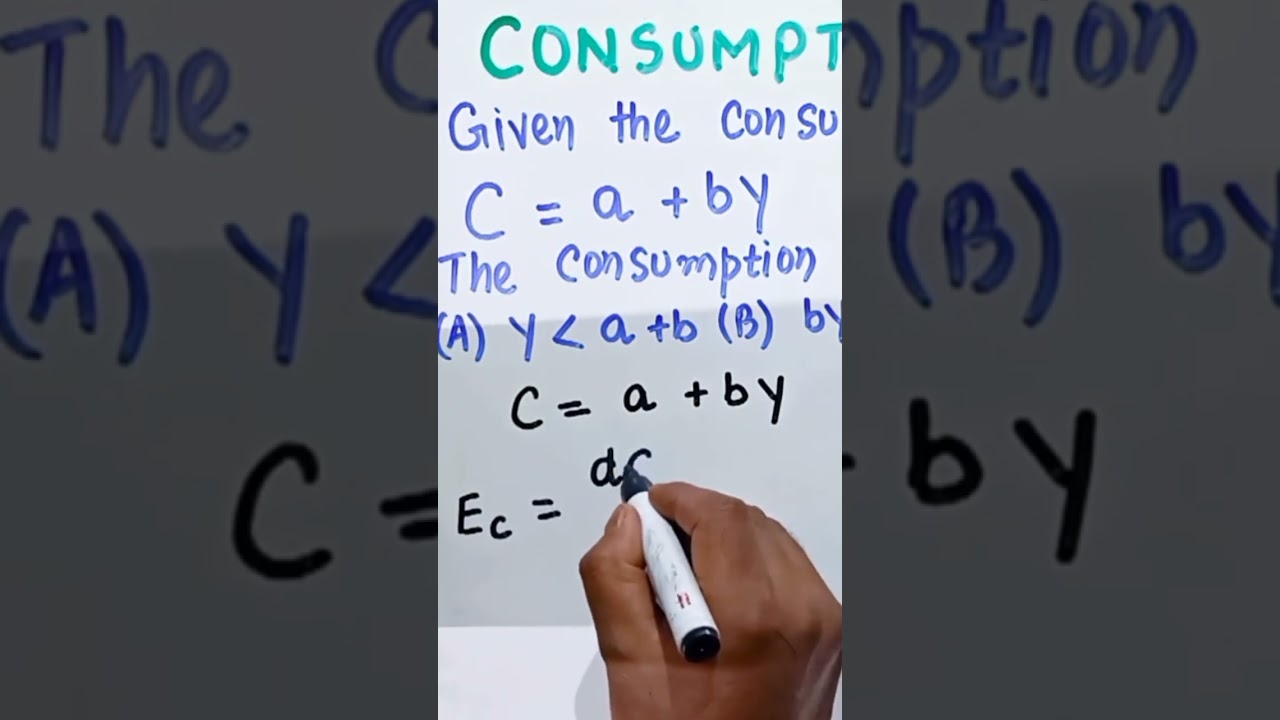 CONSUMPT
Given the Consu
C = a + by
The Consumption
(A) y < a + b (B) by
C = a + by
Ec = dC